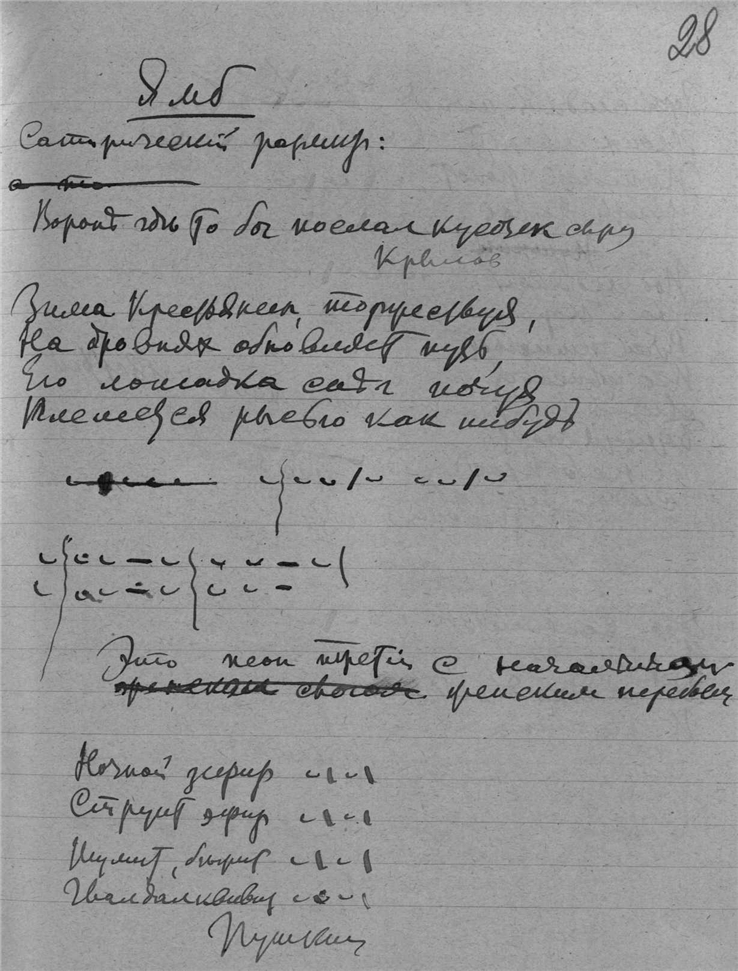 28
Ямб
Сатирический размер:
Вороне где то бог послал кусочек сыру
Крылов
Зима Крестьянин, торжествуя,
На дровнях обновляет путь,
Его лошадка снег почуя
Плетется рысью как нибудь
Это пеон третий с начальным
греческим перебоем
Ночной зефир
Струит эфир
Шумит, бежит
Гвалдалквивир
Пушкин